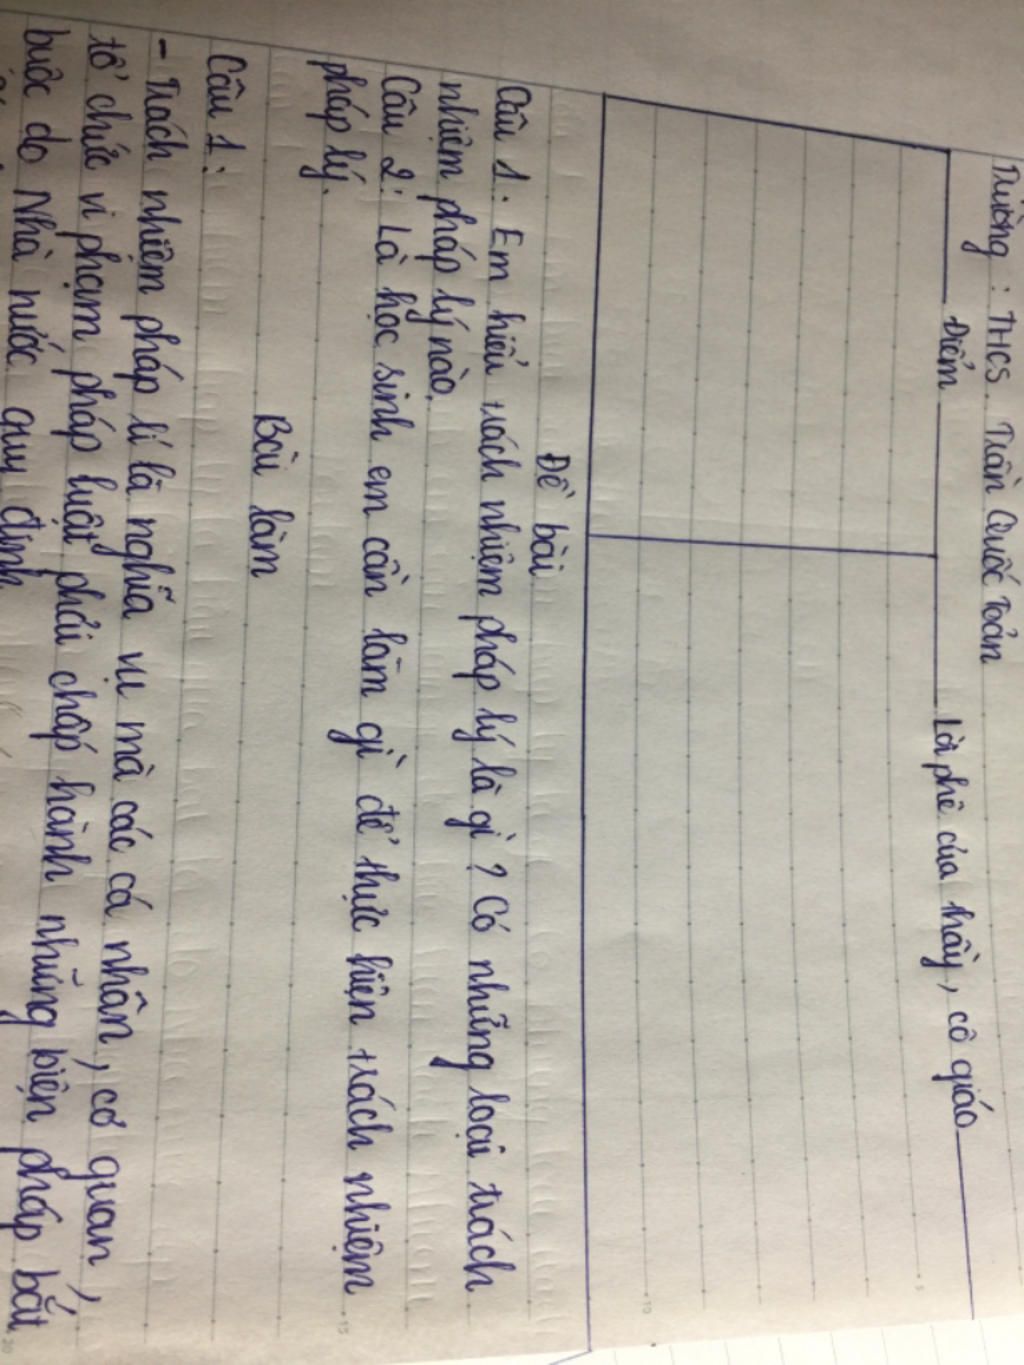 Trường : THCS. Trần Quốc Toản
Điểm Lời phê của thầy, cô giáo
Đề bài
Câu 1. Em hiểu trách nhiệm pháp lý là gì? Có những loại trách
nhiệm pháp lý nào.
Câu 2: Là học sinh em cần làm gì để thực hiện trách nhiệm
pháp lý.
Bài làm
Câu 1:
- Trách nhiệm pháp lí là nghĩa vụ mà các cá nhân, cơ quan,
tổ chức vi phạm pháp luật phải chấp hành những biện pháp bắt
buộc do Nhà nước quy định